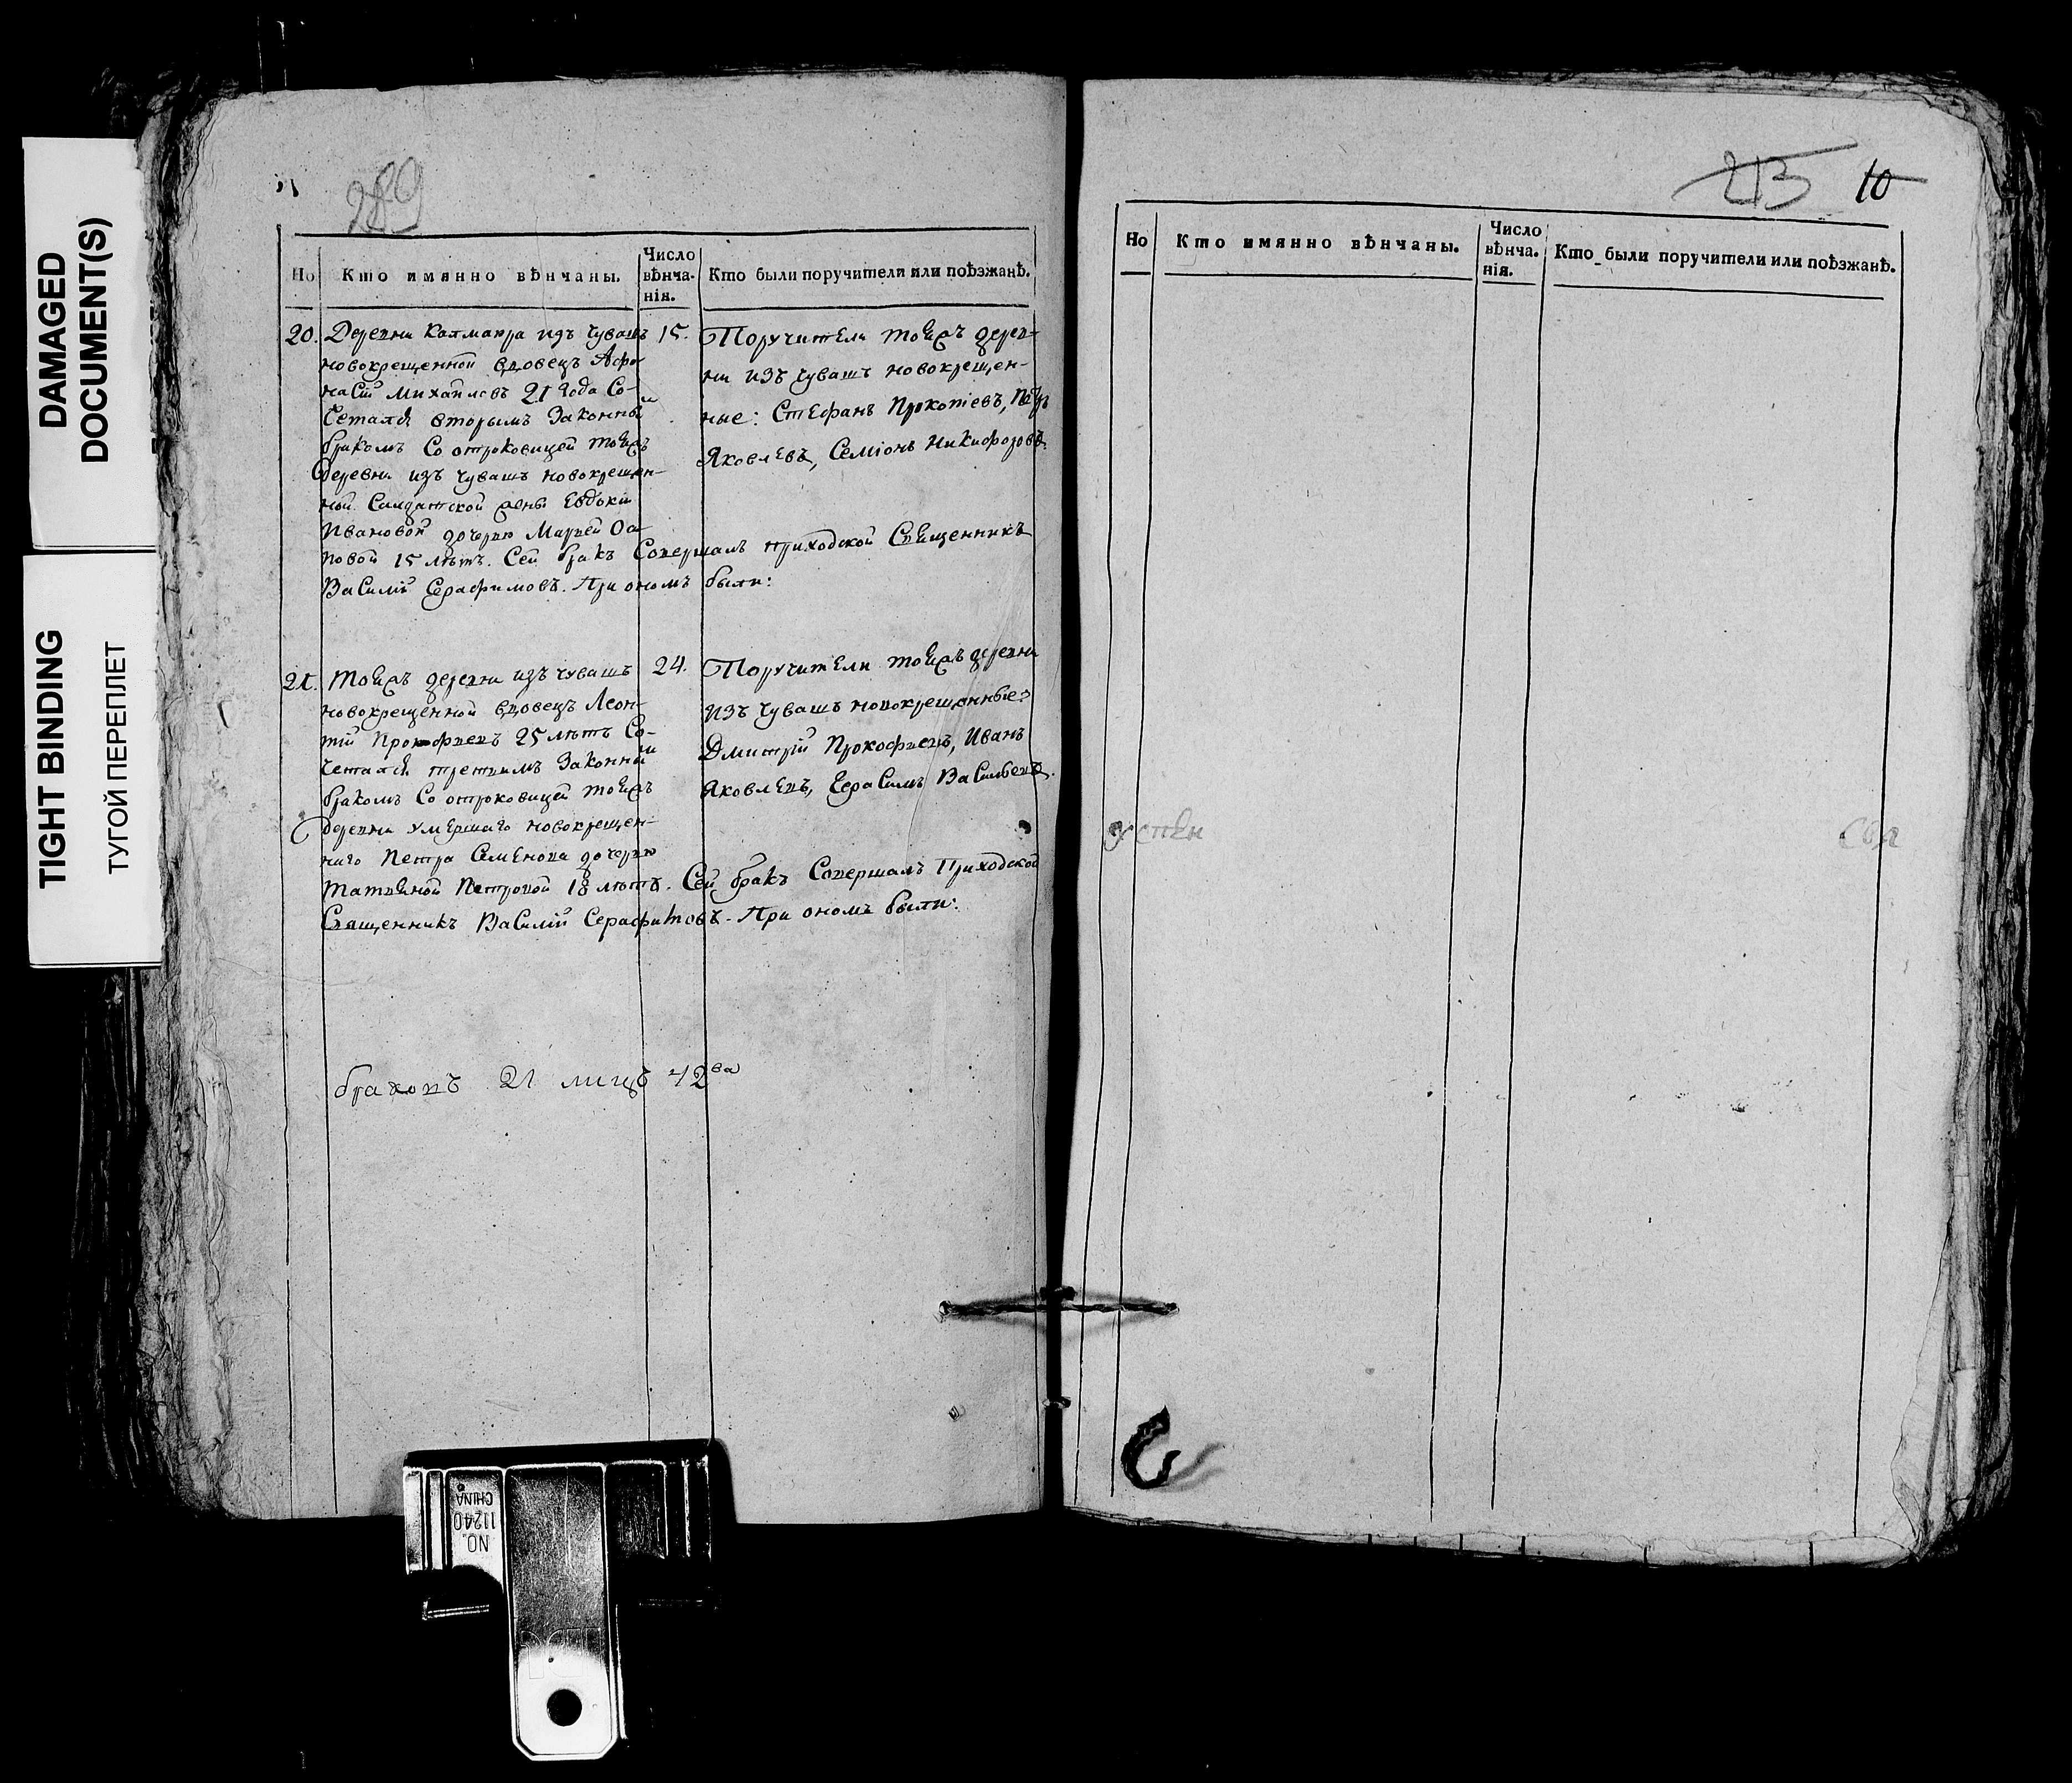 DAMAGED
DOCUMENT(S)
TIGHT BINDING
ТУГОЙ ПЕРЕПЛЕТ
289
Но
Кто имянно вѣнчаны.
Число
вѣнча-
нія.
Кто были поручители или поѣзжанѣ.
20. Деревни Калмаюра изъ Чувашъ
новокрещенной вдовецъ Афо-
насій Михайловъ 21 года Со-
четался вторымъ Законны
бракомъ Со отроковицей тоежъ
деревни изъ Чувашъ новокрещен-
ной Салдатской жены Евдокіи
Ивановой дочерью Марьей
повой 15 лѣтъ. Сей бракъ Совершалъ приходской Священникъ
Василій Серафимовъ. При ономъ были:
15.
Поручители тоежъ дерев-
ни изъ Чувашъ новокрещен-
ные: Стефанъ Прокопіевъ, Петръ
Яковлевъ, Семіонъ Никифоровъ.
21. Тоежъ деревни изъ Чувашъ
новокрещенной вдовецъ Леон-
тій Прокофьевъ 25 лѣтъ Со-
четался третьимъ Законны
бракомъ Со отроковицей тоежъ
деревни умершаго новокрещен-
наго Петра Семенова дочерью
Татьяной Петровой 18 лѣтъ. Сей бракъ Совершалъ Приходской
Священникъ Василій Серафимовъ. При ономъ были:
24.
Поручители тоежъ деревни
изъ Чувашъ новокрещенные:
Дмитрій Прокофьевъ, Иванъ
Яковлевъ, Герасимъ Васильевъ.
браковъ 21 лицъ 42ва
213 10
Но
Кто имянно вѣнчаны.
Число
вѣнча.
нія.
Кто были поручители или поѣзжанѣ.
NO.
11240
CHINA